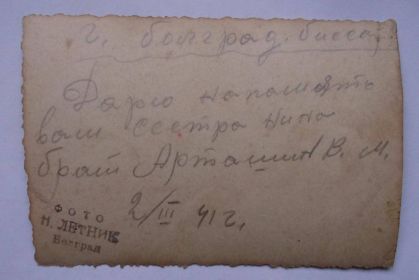 г. болград. бисса,
Дарю напомять
вам сестра Нина
брат Арташин В. М.
2/III 41 г.
ФОТО
Н. ЛЕТНИК
Болград